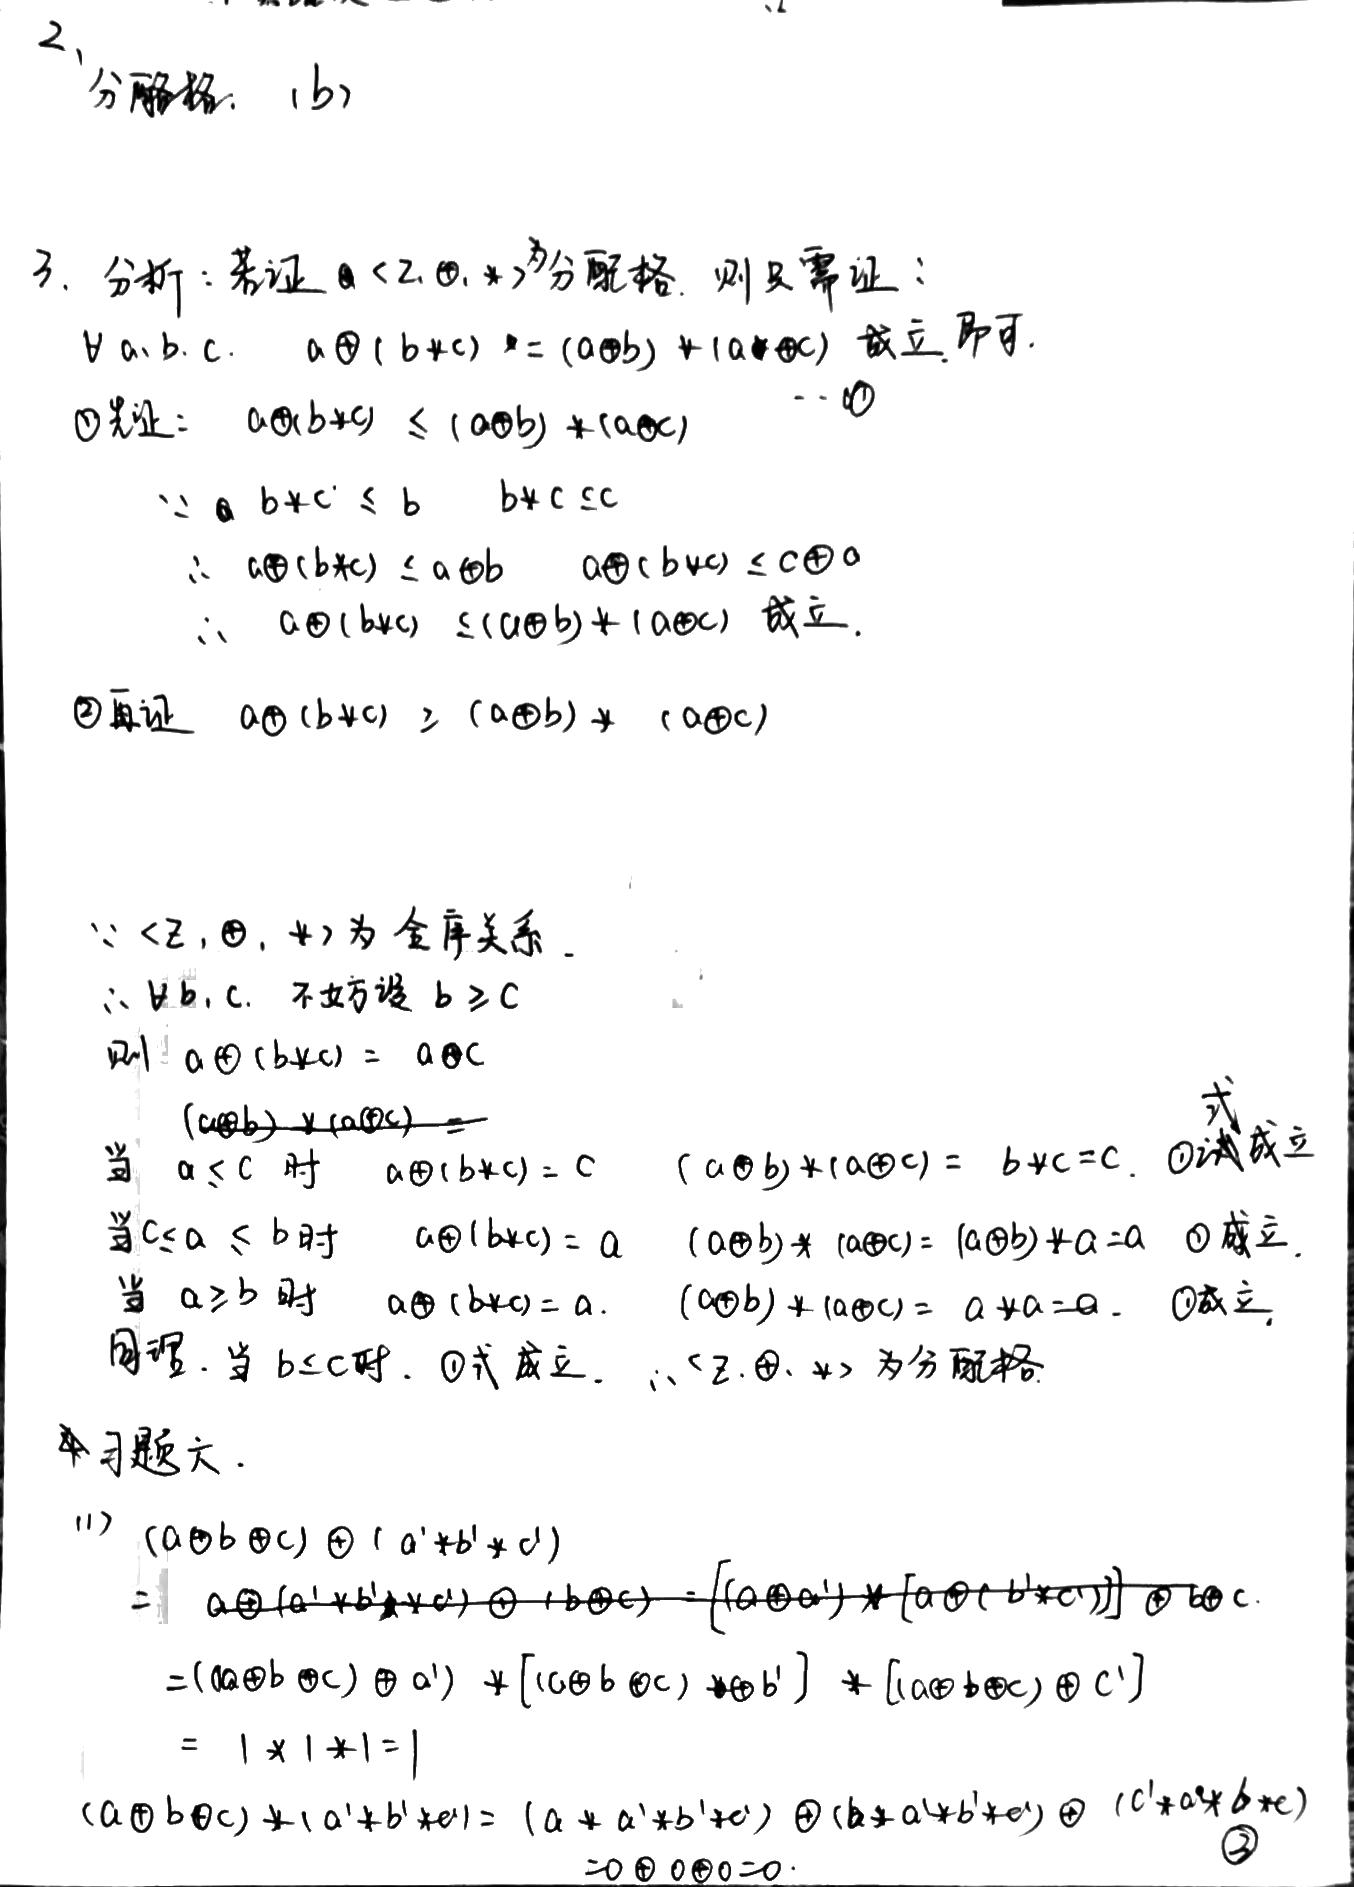 2、
分配格. (b)
3. 分析: 若证 <Z, ⊕, *>为分配格. 则只需证:
∀ a、b. c. a⊕(b*c) = (a⊕b) * (a⊕c) 成立. 即可.
... ①
①先证: a⊕(b*c) ≤ (a⊕b) * (a⊕c)
∵ b*c ≤ b b*c ≤ c
∴ a⊕(b*c) ≤ a⊕b a⊕(b*c) ≤ c⊕a
∴ a⊕(b*c) ≤ (a⊕b) * (a⊕c) 成立.
②再证 a⊕(b*c) ≥ (a⊕b) * (a⊕c)
∵ <Z, ⊕, *> 为全序关系.
∴ ∀b, c. 不妨设 b ≥ c
则 a⊕(b*c) = a⊕c
(a⊕b) * (a⊕c) =
当 a ≤ c 时 a⊕(b*c) = c (a⊕b)*(a⊕c) = b*c=c. ①式成立
当c≤a ≤ b时 a⊕(b*c) = a (a⊕b)* (a⊕c)= (a⊕b)*a=a ①成立.
当 a≥b 时 a⊕(b*c)=a. (a⊕b)*(a⊕c)= a*a=a. ①成立.
同理. 当 b≤c时. ①式成立. ∴ <Z. ⊕. *> 为分配格.
习题六.
(1) (a⊕b⊕c) ⊕ (a'*b'*c')
= a⊕(a'*b'*c') ⊕ (b⊕c) = [(a⊕a') * [a⊕(b'*c')]] ⊕ b⊕c.
=((a⊕b⊕c) ⊕ a') * [(a⊕b⊕c) ⊕b'] * [(a⊕b⊕c) ⊕ c']
= 1*1*1=1
(a⊕b⊕c) * (a'*b'*c')= (a * a'*b'*c') ⊕ (b*a'*b'*c') ⊕ (c'*a'*b'*c)
=0⊕0⊕0=0.
③